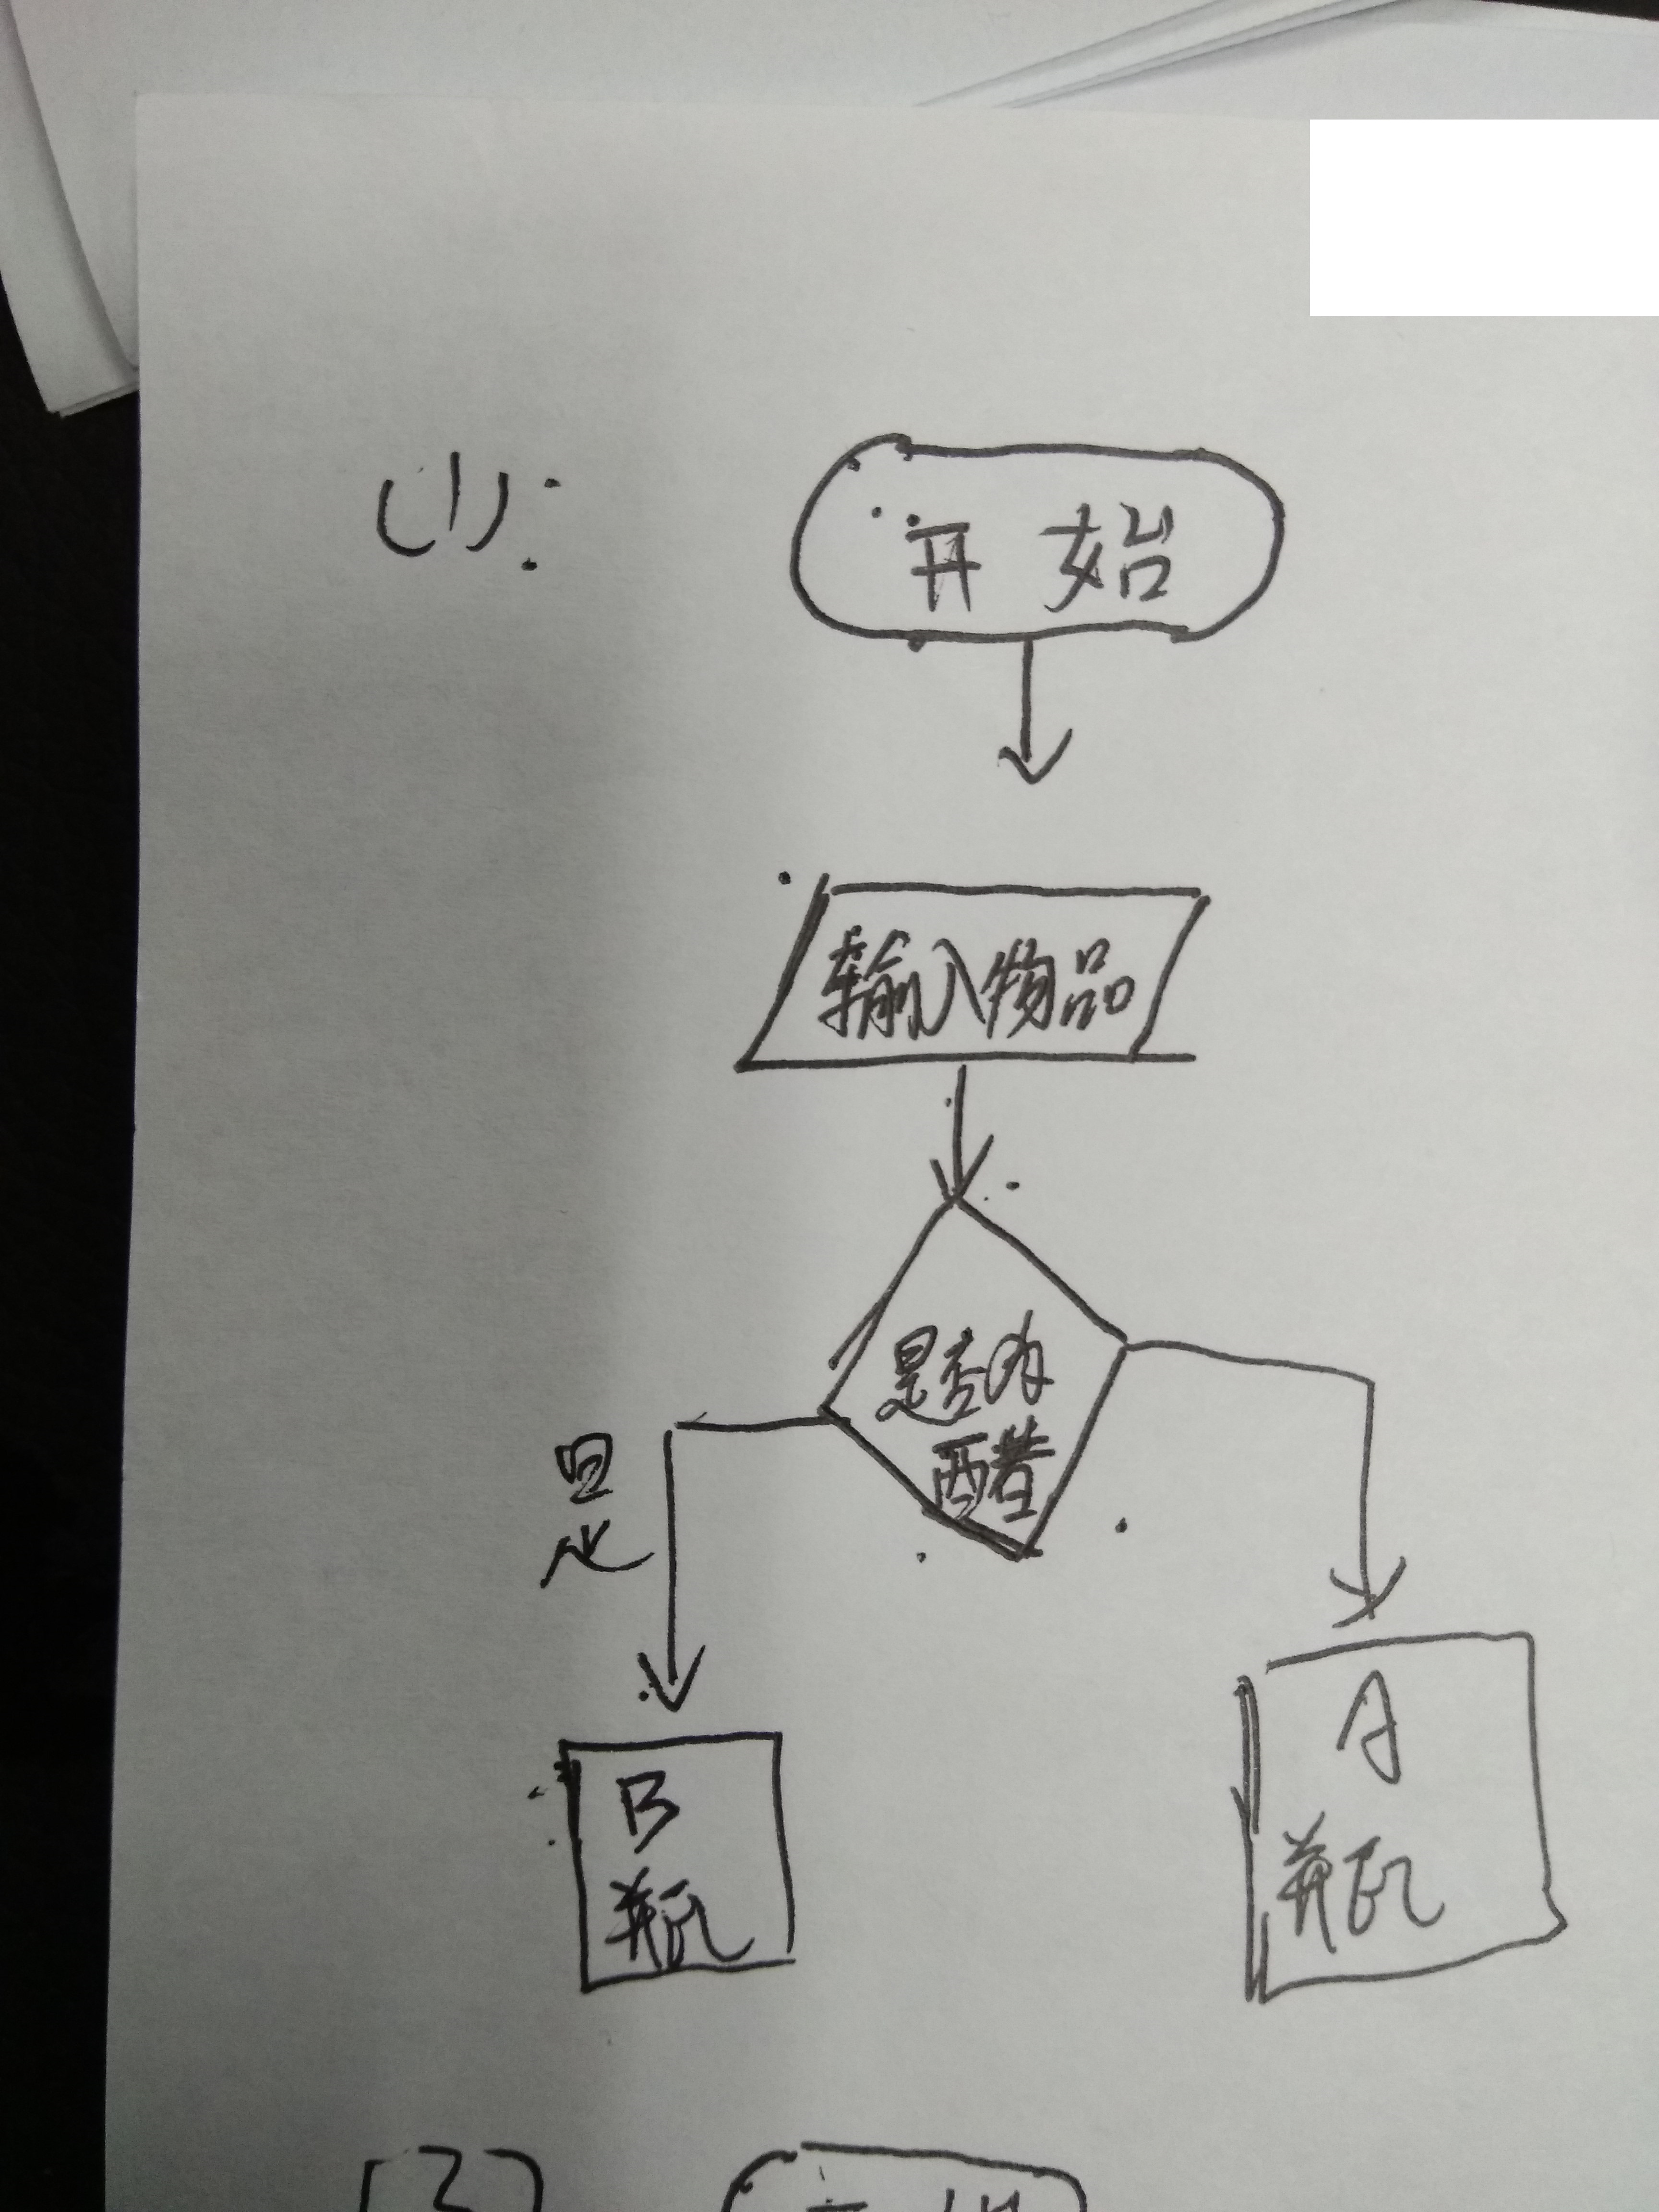 (1):
开始
输入物品
是否为
醋
是
B
瓶
A
瓶